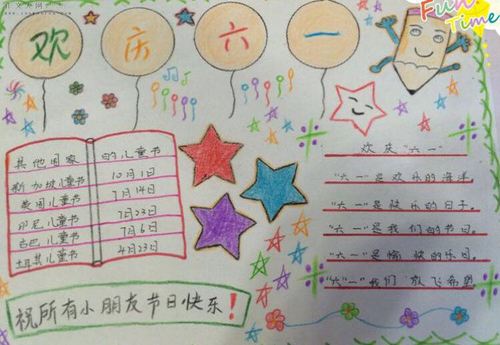 欢庆六一
Fun Time
其他国家的儿童节
新加坡儿童节 10月1日
美国儿童节 7月14日
印尼儿童节 7月23日
古巴儿童节 7月6日
土耳其儿童节 4月23日
祝所有小朋友节日快乐！
欢庆"六一"
"六一"是欢乐的海洋.
"六一"是快乐的日子.
"六一"是我们的节日.
"六一"是愉快的乐园.
"六一"我们放飞希望